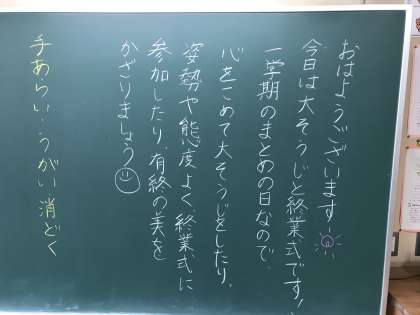 おはようございます
今日は大そうじと終業式です!
一学期のまとめの日なので、
心をこめて大そうじをしたり、
姿勢や態度よく終業式に
参加したり、有終の美を
かざりましょう
手あらい・うがい・消どく